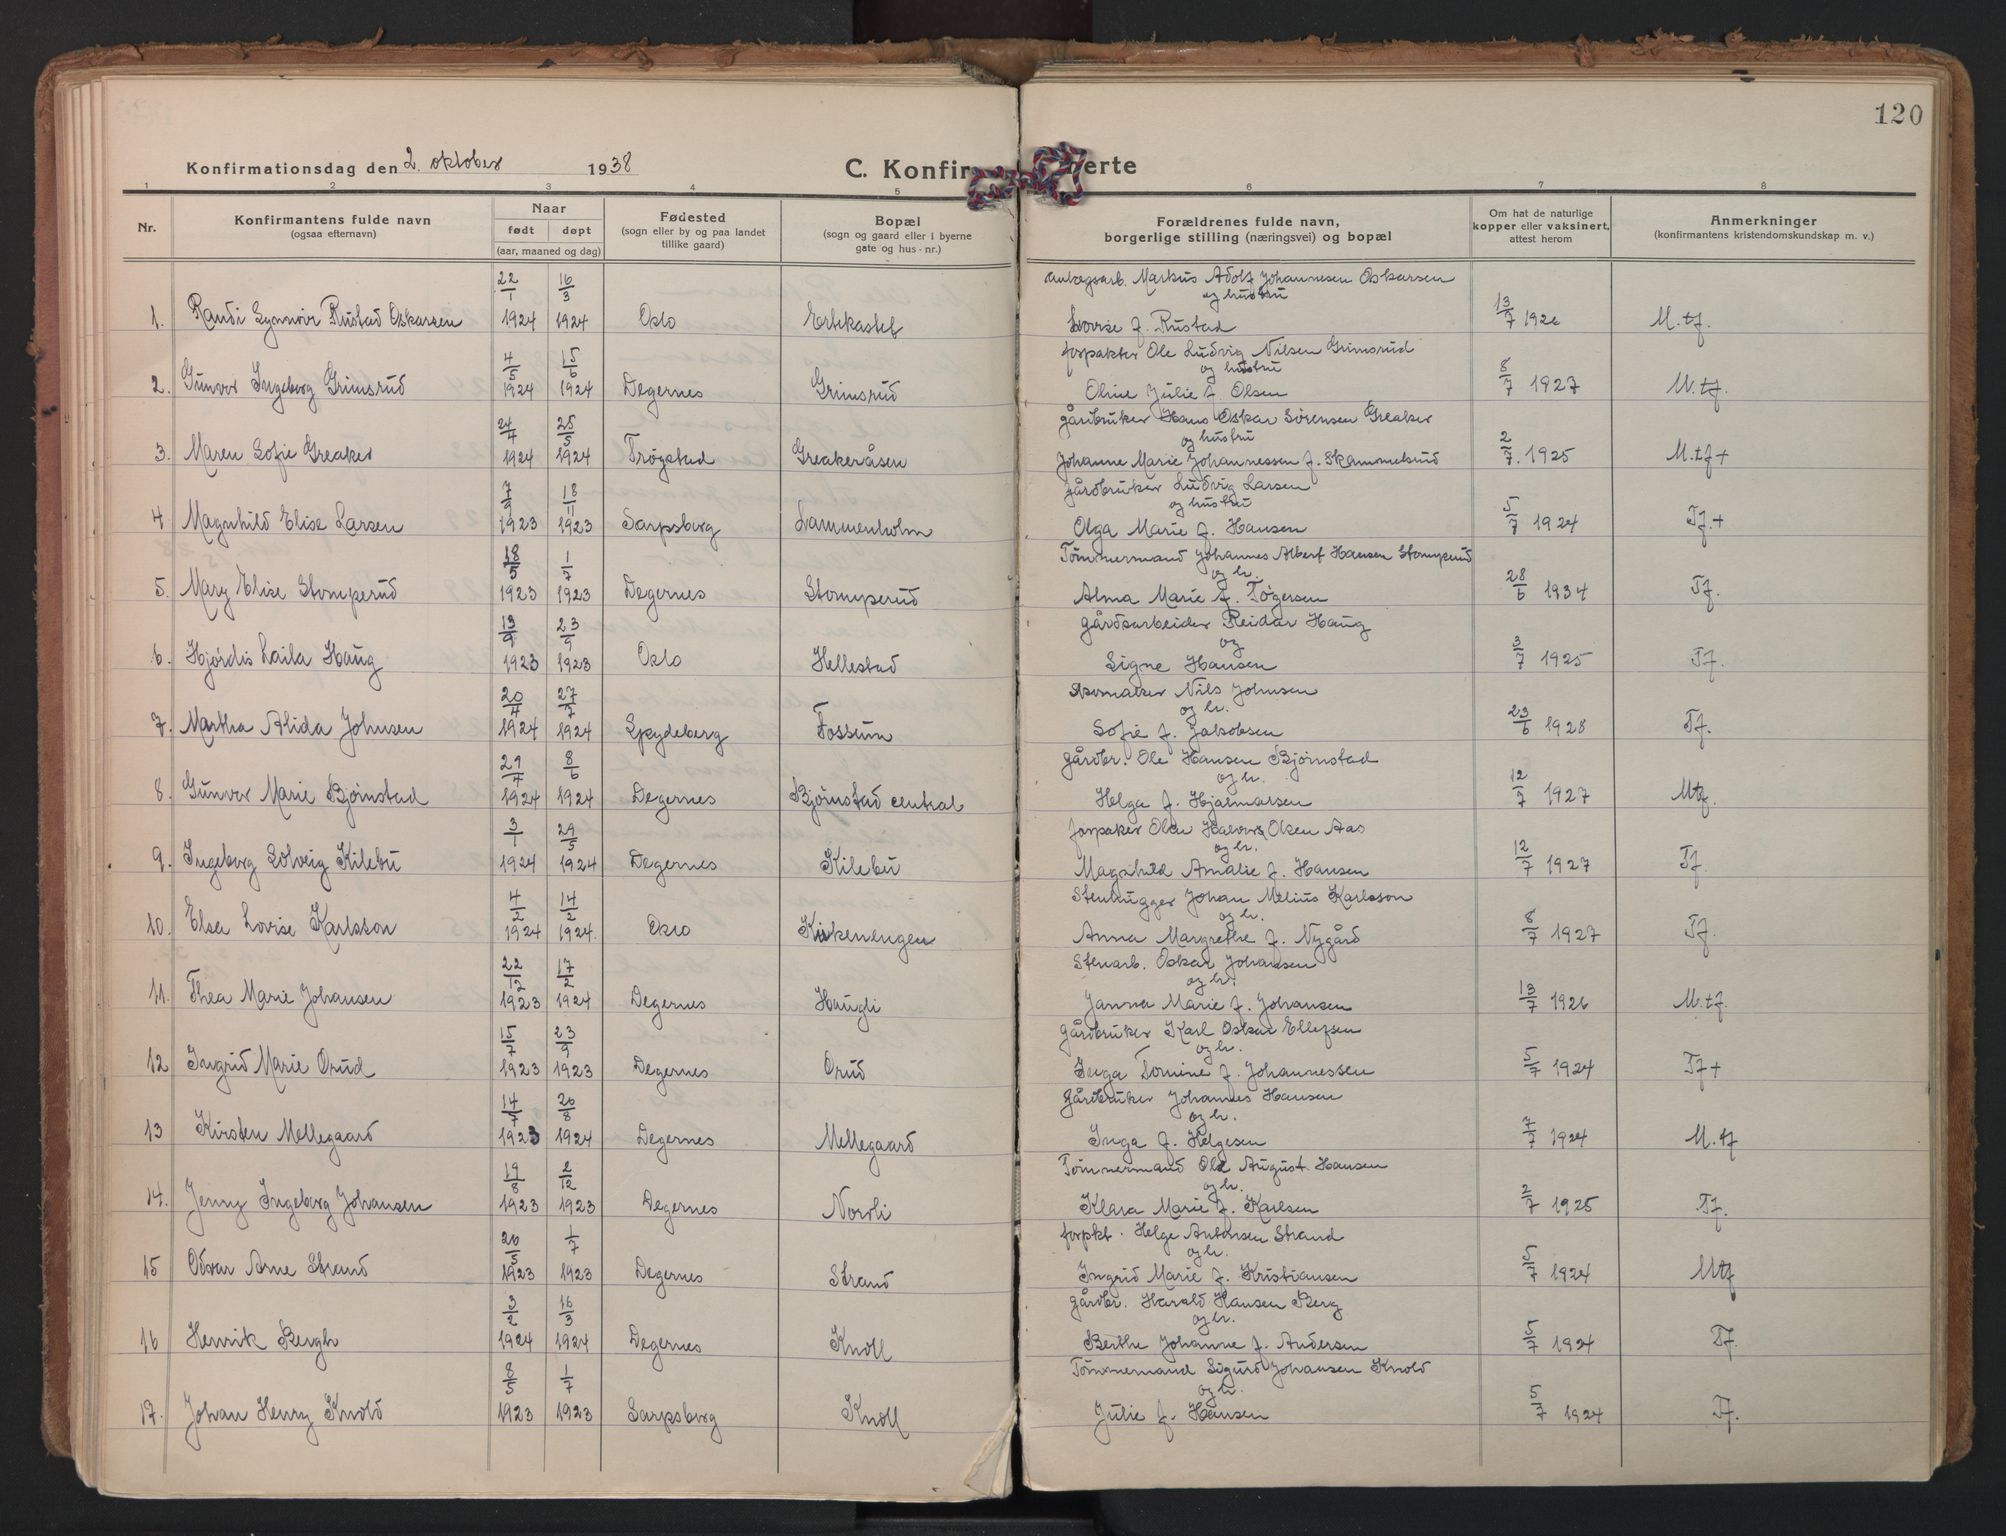 120
Konfirmationsdag den 2. oktober 1938
C. Konfir erte
1 2 3 4 5 6 7 8
Nr.
Konfirmantens fulde navn
(ogsaa efternavn)
Naar
født døpt
(aar, maaned og dag)
Fødested
(sogn eller by og paa landet
tillike gaard)
Bopæl
(sogn og gaard eller i byerne
gate og hus-nr.)
Forældrenes fulde navn,
borgerlige stilling (næringsvei) og bopæl
Om hat de naturlige
kopper eller vaksinert,
attest herom
Anmerkninger
(konfirmantens kristendomskundskap m. v.)
22/1 16/3 Markus Adolf Johannesen Oskarsen
og hustru
1. Randi Synnøve Rustad Oskarsen 1924 1924 Oslo Lovise f. Rustad 13/7 1926 M.tf.
4/5 15/6 forpakter Ole Ludvig Nilsen Grimsrud
og hustru
2. Gunvor Ingeborg Grimsrud 1924 1924 Degernes Grimsrud Oline Julie f. Olsen 8/7 1927 M.tf.
24/4 25/5 gårdbruker Hans Oskar Sørensen Greaker
og hustru
3. Maren Sofie Greaker 1924 1924 Trøgstad Greakeråsen Johanne Marie Johannessen f. Skammelsrud 2/7. 1925 M.tf+
7/9 18/11 gårdbruker Ludvig Larsen
og hustru
4 Magnhild Elise Larsen 1923 1923 Sarpsborg Lammenholm Olga Marie f. Hansen 5/7 1924 Tf.+
18/5 1/7 Tømmermand Johannes Albert Hansen Stomperud
og h.
5. Mary Elise Stomperud 1923 1923 Degernes Stomperud Alma Marie f. Tøgersen 28/6 1934 Tf.
13/9 23/9 gårdsarbeider Reidar Haug
og
6. Hjørdis Laila Haug 1923 1923 Oslo Hellestad Signe Hansen 3/7 1925 Tf.
20/4 27/7 Nils Johnsen
og h.
7. Martha Alida Johnsen 1924 1924 Spydeberg Fossum Sofie f. Jakobsen 23/6 1928 Tf.
29/4 8/6 gårdbr. Ole Hansen Bjørnstad
og h.
8. Gunvor Marie Bjørnstad 1924 1924 Degernes Bjørnstad central Helga f. Hjalmarsen 12/7 1927 Mtf.
3/1 29/5 forpakter Olsen Aas
og h.
9. Ingeborg Solveig Kilebu 1924 1924 Degernes Kilebu Magnhild Amalie f. Hansen 12/7 1927 Tf.
4/2 14/2 Stenhugger Johan Melius Karlsson
og h.
10. Elsa Lovise Karlsson 1924 1924. Oslo Anna Margrethe f. Nygård 8/7 1927 Tf.
22/12 17/2 Stenarb. Oskar Johansen
og h.
11. Thea Marie Johansen 1923 1924 Degernes Haugli Janna Marie f. Johansen 13/7 1926 M.tf.
15/7 23/9 Gårdbruker Karl Oskar Ellefsen
og h.
12 Ingrid Marie Orud 1923 1923 Degernes Orud Inga Tomine f. Johannessen 5/7 1924 Tf+
14/7 26/8 Gårdbruker Johannes Hansen
og h.
13 Kirsten Mellegaard 1923 1924 Degernes Mellegaard Inga f. Helgesen 7/7 1924 M.tf
19/8 2/12 Tømmermand Ole August Hansen
og h.
14. Jenny Ingeborg Johansen 1923 1923 Degernes Nordli Klara Marie f. Karlsen 2/7 1925 Tf.
26/5 1/7 forpkt. Helge Antonsen Strand
og h.
15 Oddvar Arne Strand 1923 1923 Degernes Strand Ingrid Marie f. Kristiansen 5/7 1924 Mtf
3/2 16/3 gårdbr. Harald Hansen Berg
og h.
16 Henrik Bergh 1924 1924 Degernes Knoll Berthe Johanne f. Andersen 5/7 1924 Tf.
8/5 1/7 Tømmermand Sigurd Johansen Knold
og h.
17. Johan Henry Knold 1923 1923 Sarpsborg Knoll Julie f. Hansen 5/7 1924 Tf.